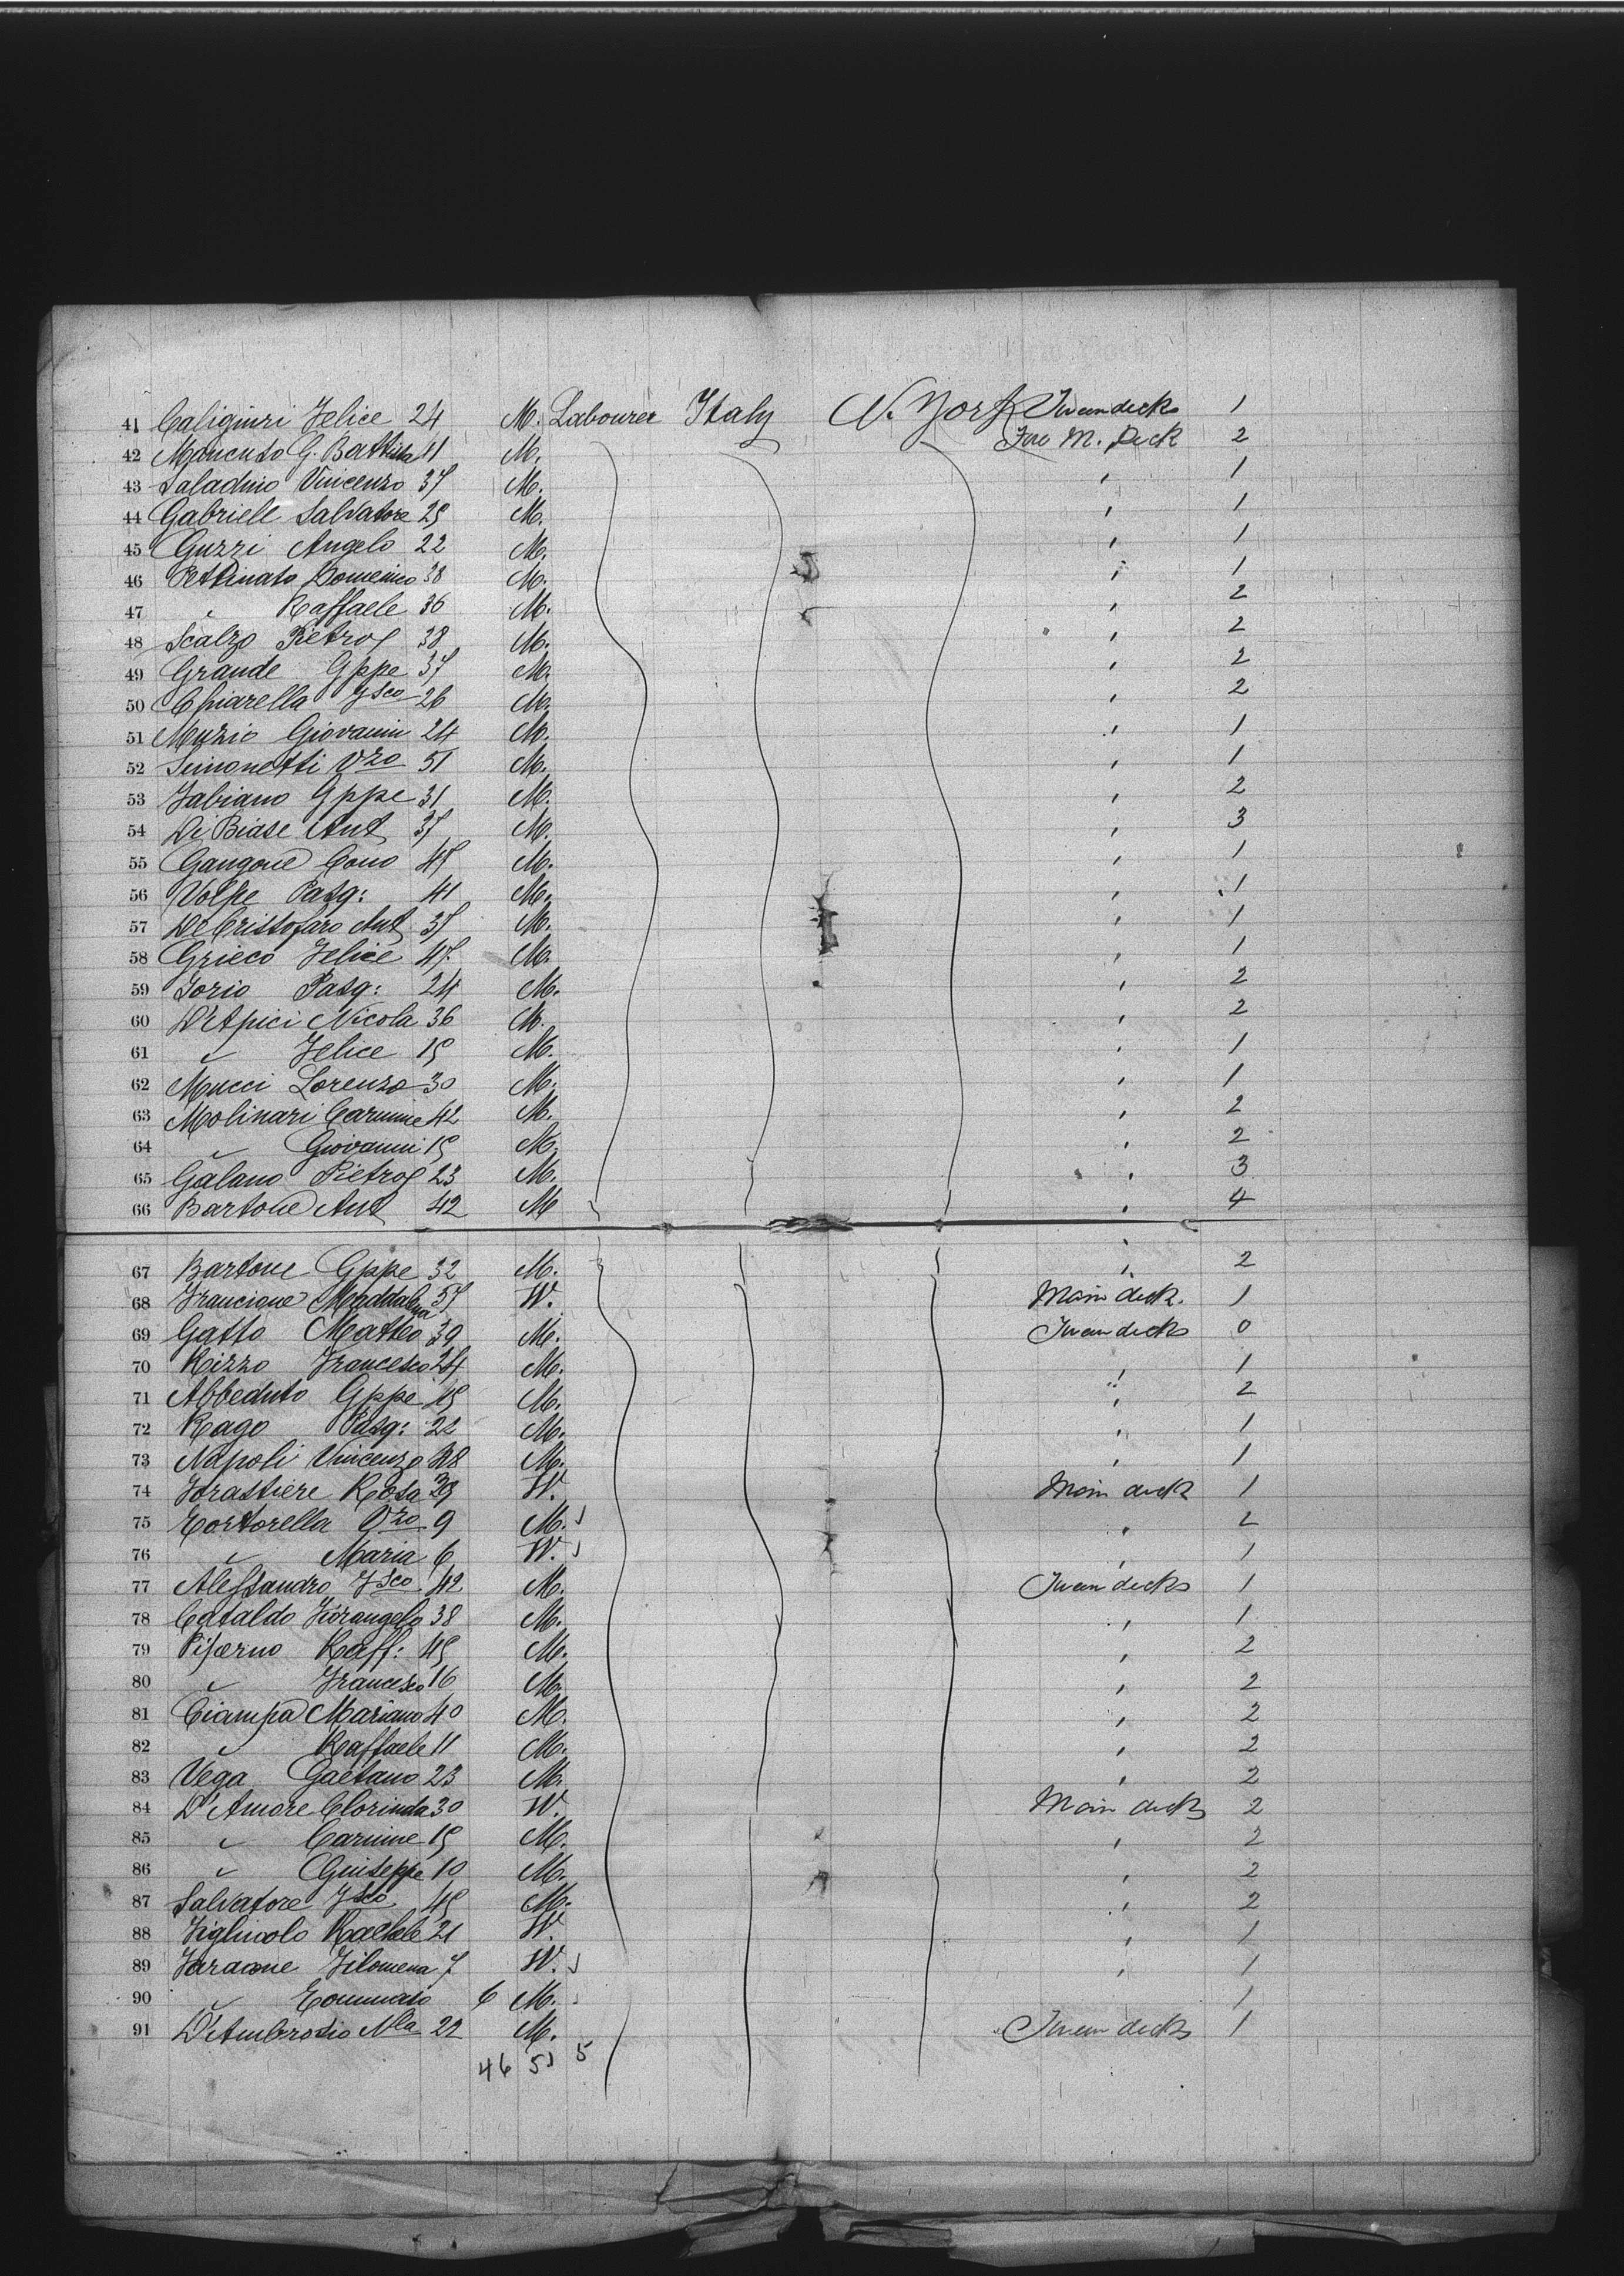 41 Caligiuri Felice 24 M. Labourer Italy N. York Tween decks 1
42 Mancuso G. Battista 11 M. Fore M. Deck 2
43 Saladino Vincenzo 37 M. " 1
44 Gabriele Salvatore 25 M. " 1
45 Guzzi Angelo 22 M. " 1
46 Pettinato Domenico 38 M. " 1
47 " Raffaele 36 M. " 2
48 Scalzo Pietro 38 M. " 2
49 Grande Gppe 37 M. " 2
50 Chiarella Fsco 26 M. " 2
51 Muzio Giovanni 24 M. " 1
52 Simonetti Vzo 51 M. " 1
53 Fabiano Gppe 31 M. " 2
54 Di Biase Ant 37 M. " 3
55 Gangone Cono 45 M. " 1
56 Volpe Pasq: 41 M. " 1
57 De Cristofaro Ant 35 M. " 1
58 Grieco Felice 47 M. " 1
59 Iorio Pasq: 24 M. " 2
60 D'Apici Nicola 36 M. " 2
61 " Felice 15 M. " 1
62 Mucci Lorenzo 30 M. " 1
63 Molinari Carmine 42 M. " 2
64 " Giovanni 15 M. " 2
65 Galano Pietro 23 M. " 3
66 Bartone Ant 42 M " 4
67 Bartone Gppe 32 M. " 2
68 Francione Maddalena 57 W. Main deck. 1
69 Gatto Matteo 39 M. Tween decks 0
70 Rizzo Francesco 24 M. " 1
71 Abbeduto Gppe 15 M. " 2
72 Rago Pasq: 22 M. " 1
73 Napoli Vincenzo 48 M. " 1
74 Forastiere Rosa 39 W. Main deck 1
75 Tortorella Vzo 9 M. " 2
76 " Maria 6 W. " 1
77 Alessandro Fsco 42 M. Tween decks 1
78 Cataldo Fiorangelo 38 M. " 1
79 Raff: 45 M. " 2
80 " Francesco 16 M. " 2
81 Ciampa Mariano 40 M. " 2
82 " Raffaele 11 M. " 2
83 Vega Gaetano 23 M. " 2
84 D'Amore Clorinda 30 W. Main decks 2
85 " Carmine 15 M. " 2
86 " Giuseppe 10 M. " 2
87 Salvatore Fsco 45 M. " 2
88 Rachele 21 W. " 1
89 Filomena 7 W. " 1
90 " Tommaso 6 M. 1
91 D'Ambrosio Nla 22 M. Tween decks 1
46 51 5